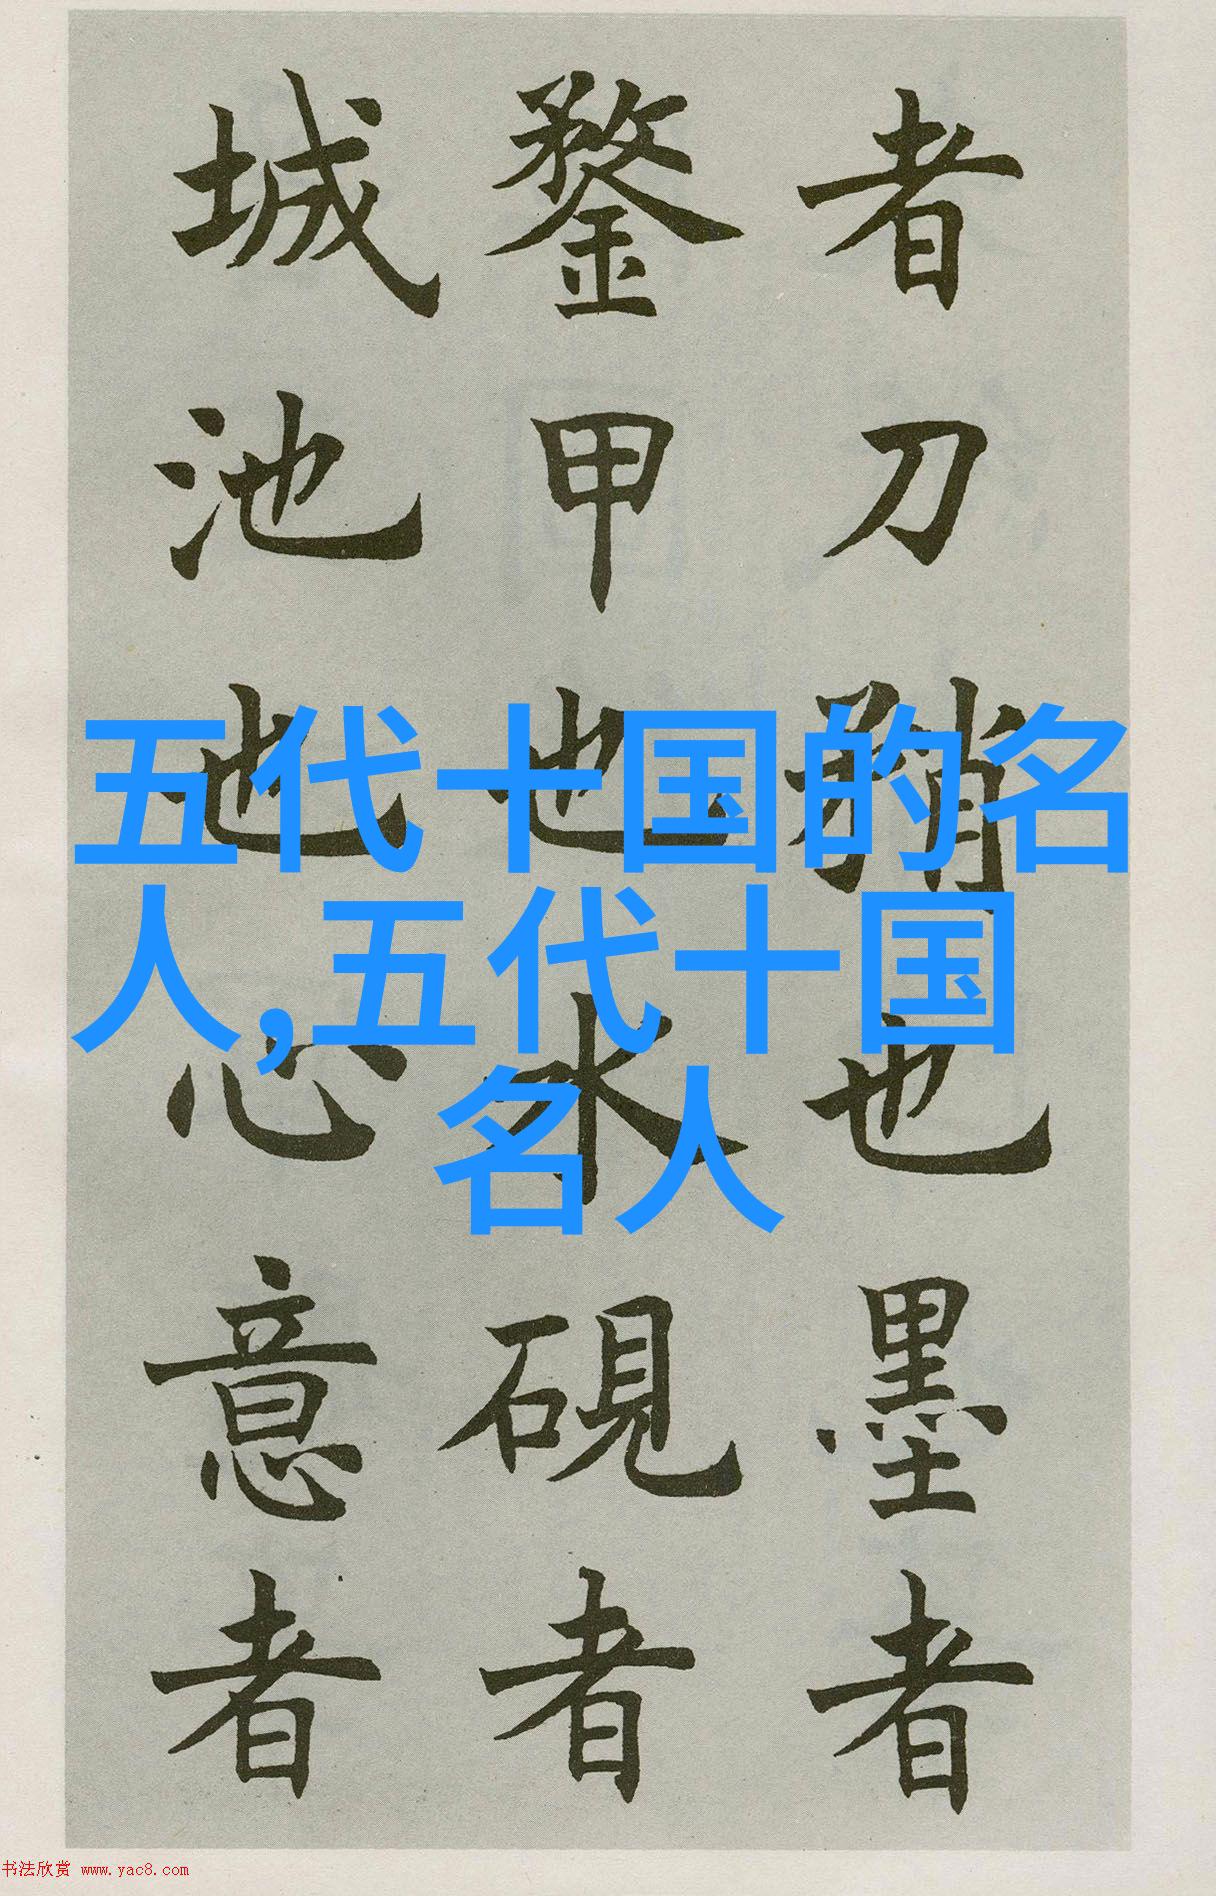 者刀矟也墨者
鍪甲也水硯者
城池也心意者
五代十国的名
人,五代十国
名人
书法欣赏 www.yac8.com